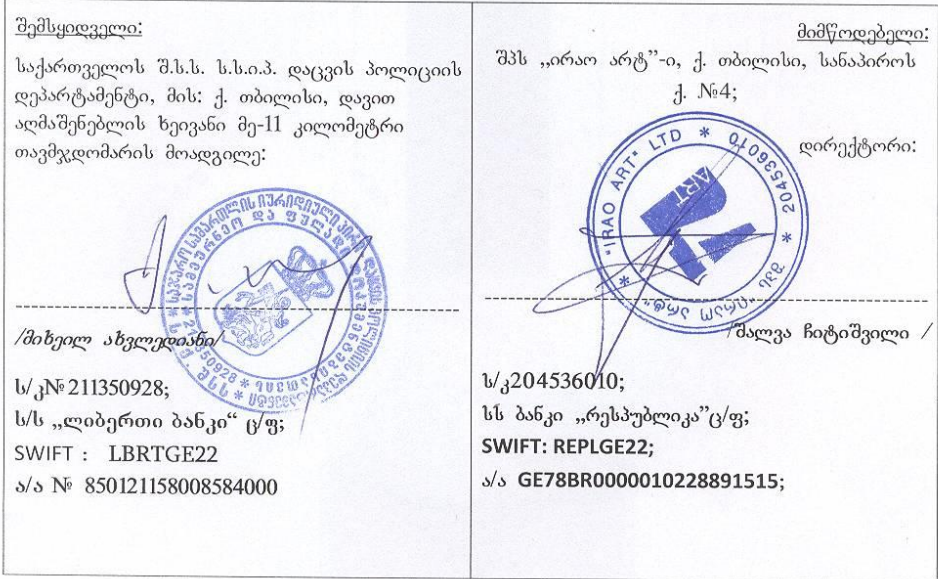 შემსყიდველი:
საქართველოს შ.ს.ს. ს.ს.ი.პ. დაცვის პოლიციის
დეპარტამენტი, მის: ქ. თბილისი, დავით
აღმაშენებლის ხეივანი მე-11 კილომეტრი
თავმჯდომარის მოადგილე:
/მიხეილ ახვლედიანი/
ს/კ№ 211350928;
ს/ს „ლიბერთი ბანკი“ ც/ფ;
SWIFT : LBRTGE22
ა/ა № 850121158008584000
მიმწოდებელი:
შპს ,,ირაო არტ”-ი, ქ. თბილისი, სანაპიროს
ქ. №4;
დირექტორი:
"IRAO ART" LTD * 204536010 * შპს "ირაო არტ" *
ART
/შალვა ჩიტიშვილი /
ს/კ204536010;
სს ბანკი „რესპუბლიკა”ც/ფ;
SWIFT: REPLGE22;
ა/ა GE78BR0000010228891515;